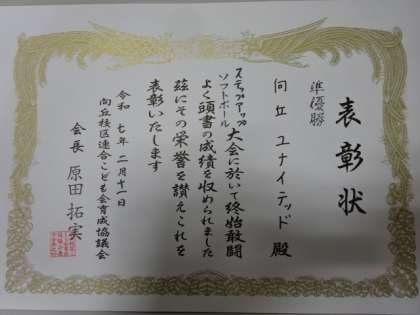 表彰状
準優勝
向丘 ユナイテッド 殿
ステップアップ
ソフトボール 大会に於いて終始敢闘
よく頭書の成績を収められました
茲にその栄誉を讃えこれを
表彰いたします
令和 七年 二月十一日
向丘校区連合こども会育成協議会
会長 原田 拓実